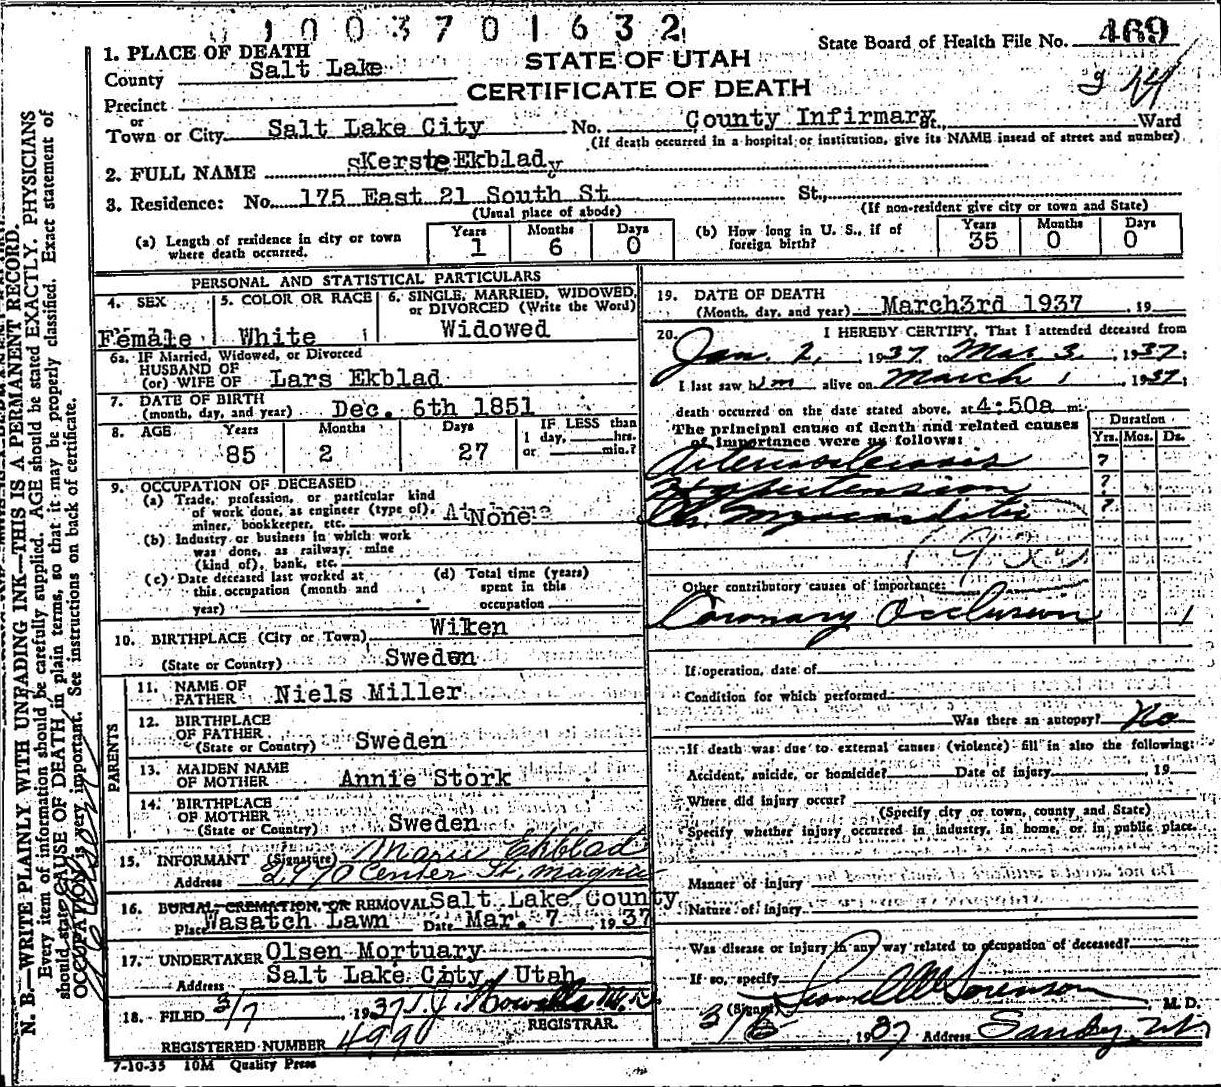 1003701632
State Board of Health File No. 469
STATE OF UTAH
CERTIFICATE OF DEATH
1. PLACE OF DEATH
County Salt Lake
Precinct
or
Town or City Salt Lake City No. County Infirmary St., Ward
(If death occurred in a hospital or institution, give its NAME insead of street and number)
2. FULL NAME Kerste Ekblad
3. Residence: No. 175 East 21 South St St.,
(Usual place of abode) (If non-resident give city or town and State)
(a) Length of residence in city or town where death occurred. Years 1 Months 6 Days 0
(b) How long in U. S., if of foreign birth? Years 35 Months 0 Days 0
PERSONAL AND STATISTICAL PARTICULARS
4. SEX Female
5. COLOR OR RACE White
6. SINGLE, MARRIED, WIDOWED, or DIVORCED (Write the Word) Widowed
6a. IF Married, Widowed, or Divorced
HUSBAND OF
(or) WIFE OF Lars Ekblad
7. DATE OF BIRTH
(month, day, and year) Dec. 6th 1851
8. AGE Years 85 Months 2 Days 27 IF LESS than 1 day, hrs. or min.?
9. OCCUPATION OF DECEASED
(a) Trade, profession, or particular kind
of work done, as engineer (type of), None
miner, bookkeeper, etc.
(b) Industry or business in which work
was done, as railway, mine
(kind of), bank, etc.
(c) Date deceased last worked at
this occupation (month and
year)
(d) Total time (years)
spent in this
occupation
10. BIRTHPLACE (City or Town) Wiken
(State or Country) Sweden
PARENTS
11. NAME OF FATHER Niels Miller
12. BIRTHPLACE OF FATHER
(State or Country) Sweden
13. MAIDEN NAME OF MOTHER Annie Stork
14. BIRTHPLACE OF MOTHER
(State or Country) Sweden
15. INFORMANT (Signature) Marie Ekblad
Address 2970 Center St, Magna
16. BURIAL, CREMATION, OR REMOVAL Salt Lake County
Place Wasatch Lawn Date Mar. 7, 1937
17. UNDERTAKER Olsen Mortuary
Address Salt Lake City, Utah
18. FILED 3/7 1937 T.J. Howells M.D.
REGISTRAR.
REGISTERED NUMBER 4990
7-10-35 10M Quality Press
19. DATE OF DEATH
(Month, day, and year) March3rd 1937 , 19
20. I HEREBY CERTIFY, That I attended deceased from
Jan. 2, 1937 to Mar 3, 1937;
I last saw him alive on March 1, 1937;
death occurred on the date stated above, at 4:50a m.
The principal cause of death and related causes
of importance were as follows:
Duration
Yrs. Mos. Ds.
Arteriosclerosis ?
Hypertension ?
Ch. Myocarditis ?
Other contributory causes of importance:
Coronary Occlusion 1
If operation, date of
Condition for which performed
Was there an autopsy? No
If death was due to external causes (violence) fill in also the following:
Accident, suicide, or homicide? Date of injury , 19
Where did injury occur?
(Specify city or town, county and State)
Specify whether injury occurred in industry, in home, or in public place.
Manner of injury
Nature of injury
Was disease or injury in any way related to occupation of deceased?
If so, specify
(Signed) Sorenson M. D.
1937 Address Sandy, Utah
N. B.—WRITE PLAINLY WITH UNFADING INK—THIS IS A PERMANENT RECORD.
Every item of information should be carefully supplied. AGE should be stated EXACTLY. PHYSICIANS
should state CAUSE OF DEATH in plain terms, so that it may be properly classified. Exact statement of
OCCUPATION is very important. See instructions on back of certificate.